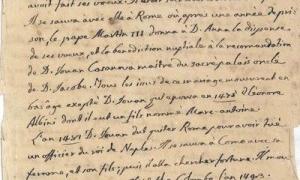 avoit fait ses vœux. Il
Il se sauva avec elle a Rome où apres une année de pri-
son, le pape Martin III donna à D. Anna la dispense
de ses vœux, et la benediction nuptiale à la recomandation
de D. Jouan Casanova maitre du sacré palais oncle
de D. Jacobe. Tous les issus de ce mariage moururent en
bas âge exepté D. Jouan qui epousa en 1475 Eleonore
Albini dont il eut un fils nomé Marc-antoine.
L'an 1481 D. Jouan dut quiter Rome pour avoir tué
un officier du roi de Naples. Il se sauva a Como avec sa
femme, et son fils; puis il alla chercher fortune. Il mou-
Colombo l'an 1493.